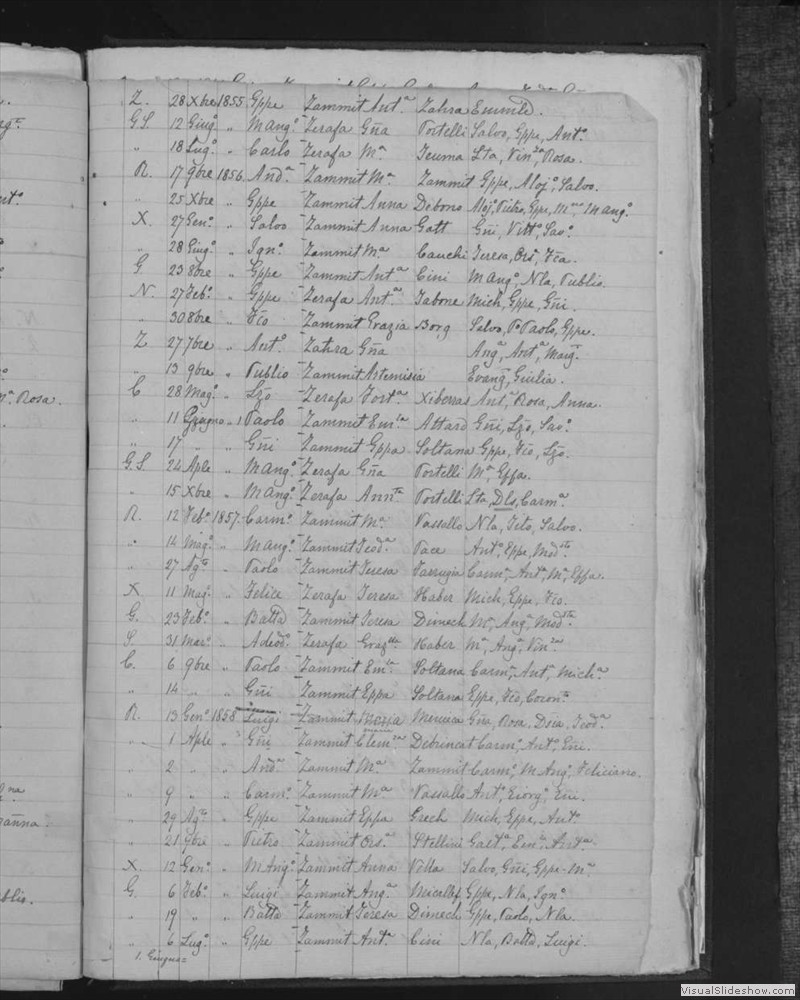 Z. 28 Xbre 1855 Gppe Zammit Antª Zahra Emmle.
G.S. 12 Giugº „ M Angº Zerafa Gña Portelli Salvo, Gppe, Antº
„ 18 Lugº „ Carlo Zerafa Mª Jeuma Lta, Vinza, Rosa.
R. 17 9bre 1856. Andª Zammit Mª Zammit Gppe, Alojº, Salvo.
„ 25 Xbre „ Gppe Zammit Anna Debono Alojº, Pietro, Gppe, M Angº
X. 27 Genº „ Salvo Zammit Anna Gatt Gñi, Vittº, Savº
„ 28 Giugº „ Ignº Zammit Mª Cauchi Teresa, Orsª, Fca.
G 23 8bre „ Gppe Zammit Antª Cini M Angº, Nla, Publio.
N. 27 Febº „ Gppe Zerafa Antª Tabone Mich, Gppe, Gñi.
„ 30 8bre „ Fco Zammit Grazia Borg Salvo, Pº Paolo, Gppe.
Z 27 7bre „ Antº Zahra Gña Angª, Antª, Margª
„ 13 9bre „ Publio Zammit Artemisia Evangª, Giulia.
C 28 Magº „ Lzo Zerafa Fortª Xiberras Antª, Rosa, Anna.
„ 11 Giugno „ 1 Paolo Zammit Emla Attard Gñi, Lzo, Savº
„ 17 „ „ Gñi Zammit Gppa Soltana Gppe, Fco, Lzo.
G.S. 24 Aple „ M Angº Zerafa Gña Portelli Mª, Gppa.
„ 15 Xbre „ M Angº Zerafa Annta Portelli Lta, Dls, Carmª
R. 12 Febº 1857. Carmº Zammit Mª Vassallo Nla, Teto, Salvo.
„ 14 Magº „ M Angº Zammit Teodª Pace Antº, Eppe, Modsto
„ 27 Agto „ Paolo Zammit Teresa Farrugia Carmª, Antª, Mª, Eppa.
X 11 Magº „ Felice Zerafa Teresa Haber Mich, Eppe, Fco.
G. 23 Febº „ Batta Zammit Teresa Dimech Mª, Angª, Modsta
S. 31 Marº „ Adeodº Zerafa Grazlla Haber Mª, Angª, Vinza
C. 6 9bre „ Paolo Zammit Emla Soltana Carmª, Antª, Michª
„ 14 „ „ Gñi Zammit Eppa Soltana Eppe, Fco, Coronta
R. 13 Genº 1858 Luigi Zammit Maria Mercieca Gña, Rosa, Dsia, Teodª
„ 1 Aple „ Gñi Zammit Clemza Debrincat Carmº, Antº, Gñi.
„ 2 „ „ Andª Zammit Mª Zammit Carmº, M Angº, Feliciano.
„ 9 „ „ Carmº Zammit Mª Vassallo Antº, Giorgº, Gñi.
„ 29 Agto „ Gppe Zammit Eppa Grech Mich, Eppe, Antº
„ 21 9bre „ Pietro Zammit Orsª Stellini Gaetª, Emª, Antª
X 12 Genº „ M Angº Zammit Anna Vella Salvo, Gñi, Gppe-Mª
G. 6 Febº „ Luigi Zammit Angª Micallef Gppe, Nla, Ignº
„ 19 „ „ Batta Zammit Teresa Dimech Gppe, Paolo, Nla.
„ 6 Lugº „ Gppe Zammit Antª Cini Nla, Batta, Luigi.
1. Giugno=
Rosa.
VisualSlideshow.com